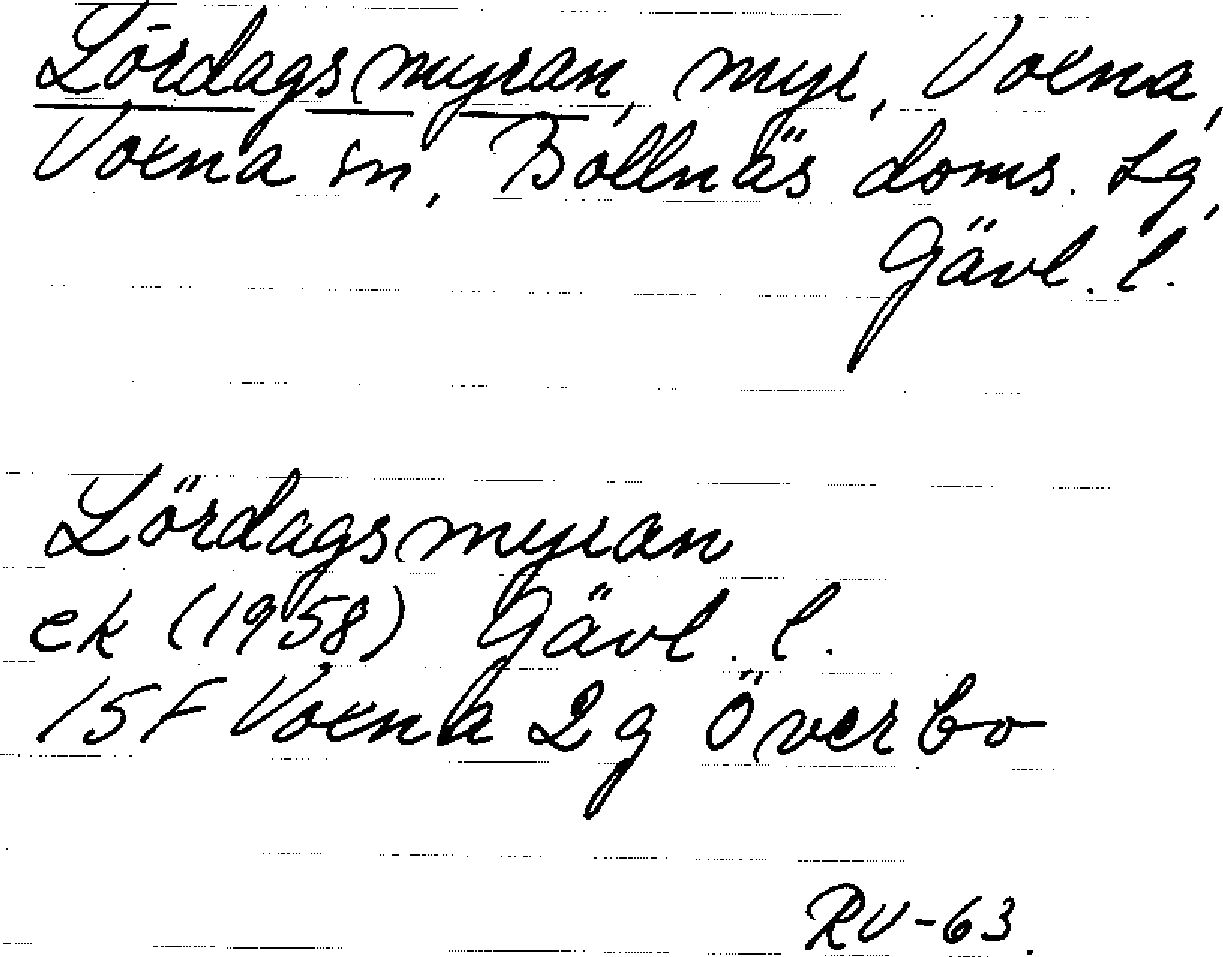 Lördagsmyran, myr, Voxna,
Voxna sn, Bollnäs doms. lg,
Gävl. l.
Lördagsmyran
ek (1958) Gävl. l.
15F Voxna 2g Överbo
RV-63.